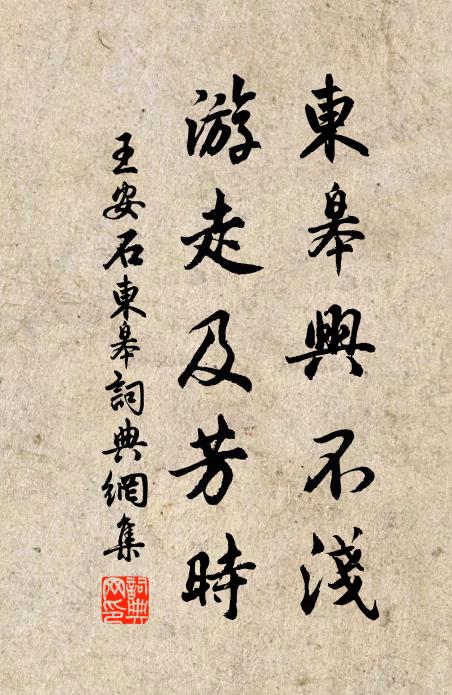 東皋興不淺
游走及芳時
王安石東皋詞典網集
詞典
网印